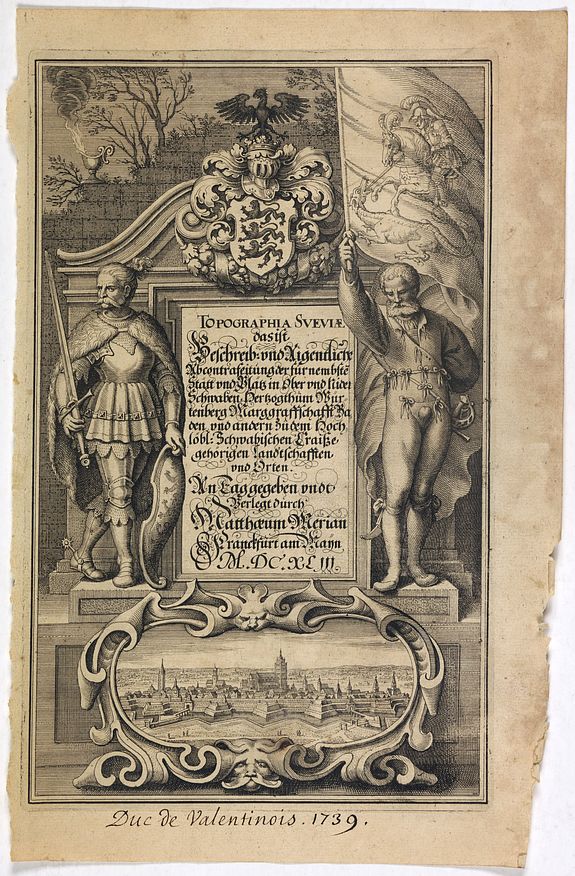 TOPOGRAPHIA SVEVIÆ
das ist
Beschreib: vnd Aigentliche
Abcontrafeitung der fürnembstē
Stätt vnd Plätz in Ober vnd Nider
Schwaben, Hertzogthum Wür-
tenberg Marggraffschafft Ba
den, vnd andern zu dem Hoch
löbl: Schwabischen Craiße
gehörigen Landtschafften
vnd Orten.
An Tag gegeben vndt
Verlegt durch
Matthæum Merian
Franckfurt am Mayn
M. DC. XLIII
Duc de Valentinois. 1739.